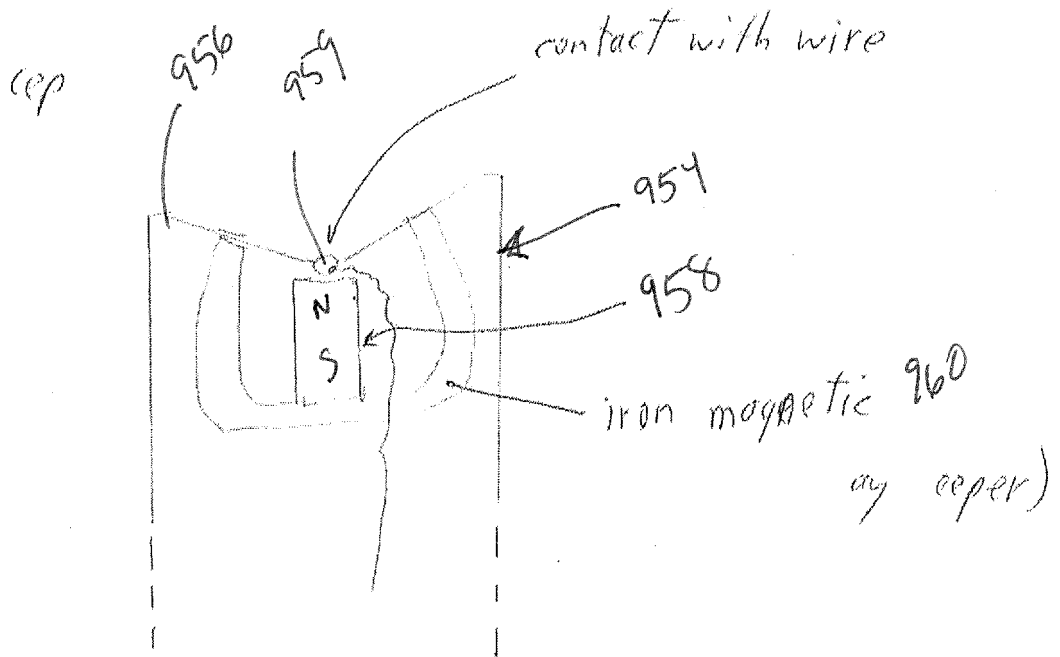 cep
956
959
contact with wire
954
958
N
S
iron magnetic 960
ay eeper)